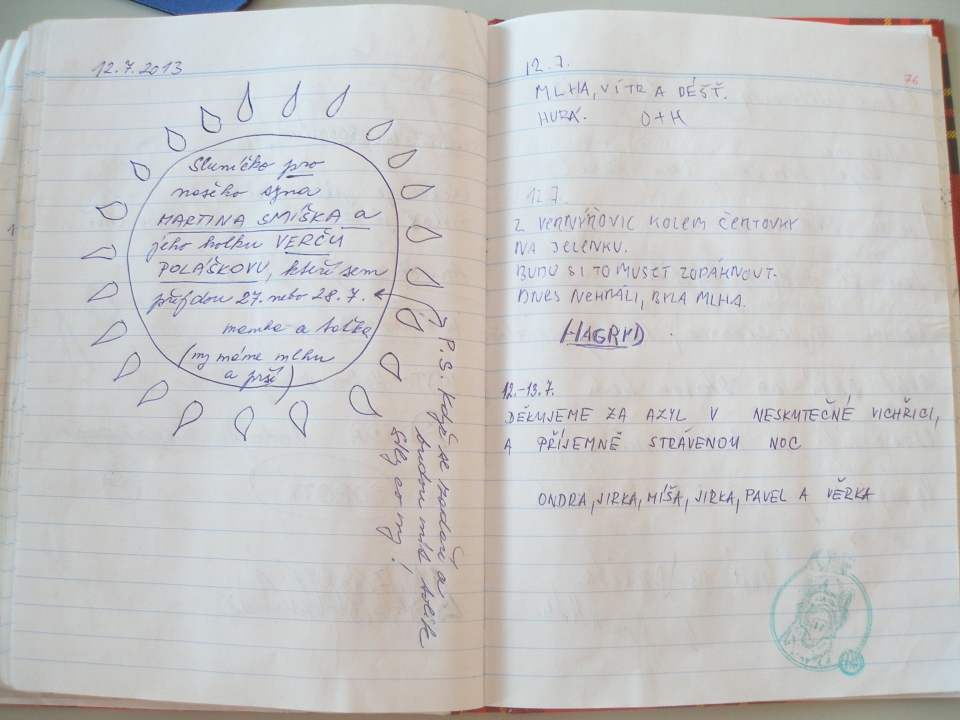 12.7.2013
Sluníčko pro
našeho syna
MARTINA SMÍŠKA a
jeho holku VERČU
POLÁŠKOVU, kteří sem
přijdou 27. nebo 28.7.
mamka a taťka
(my máme mlhu
a prší)
P.S. Když se zadaří a
budou mít tolik
síly co my!
76
12.7.
MLHA, VÍTR A DÉŠŤ.
HURÁ. O+H
12.7.
Z VERNÝŘOVIC KOLEM ČERTOVKY
NA JELENKU.
BUDU SI TO MUSET ZOPÁKNOUT.
DNES NEHŘÁLI, BYLA MLHA.
HAGRID
12.-13.7.
DĚKUJEME ZA AZYL V NESKUTEČNÉ VICHŘICI,
A PŘÍJEMNĚ STRÁVENOU NOC
ONDRA, JIRKA, MÍŠA, JIRKA, PAVEL A VĚRKA